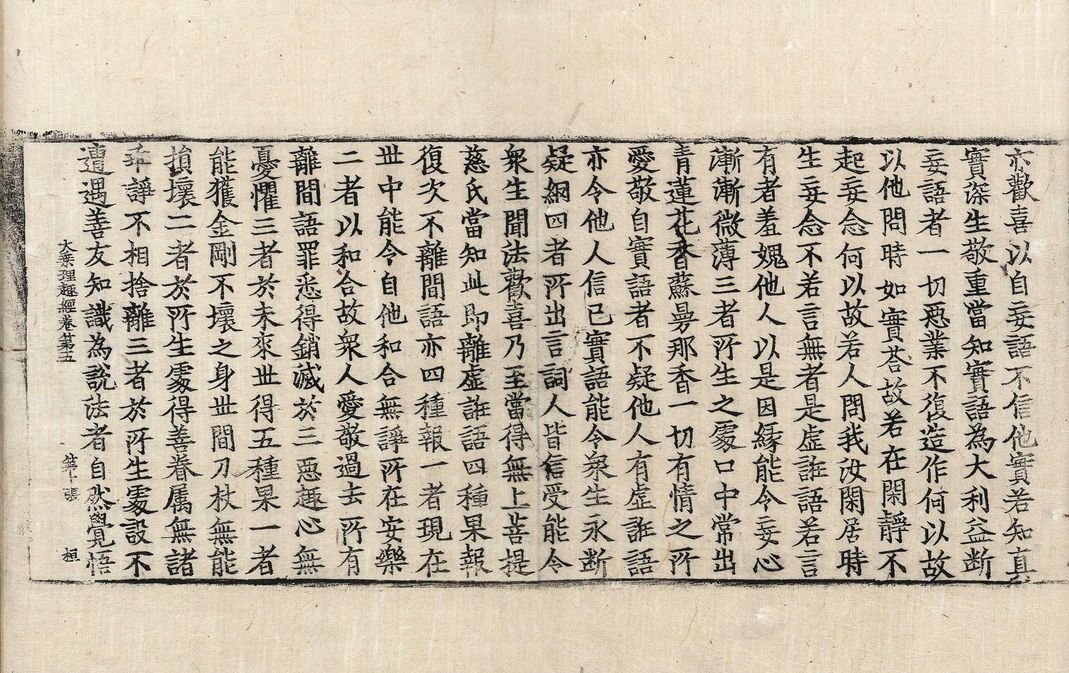 亦歡喜以自妄語不信他實若知真
實深生敬重當知實語為大利益断
妄語者一切惡業不復造作何以故
以他問時如實荅故若在閑靜不
起妄念何以故若人問我汝閑居時
生妄念不若言無者是虛誑語若言
有者羞媿他人以是因縁能令妄心
漸漸微薄三者所生之處口中常出
青蓮花香蘇曼那香一切有情之所
愛敬自實語者不疑他人有虛誑語
亦令他人信已實語能令衆生永断
疑網四者所出言詞人皆信受能令
衆生聞法歡喜乃至當得無上菩提
慈氏當知此即離虛誑語四種果報
復次不離間語亦四種報一者現在
世中能令自他和合無諍所在安樂
二者以和合故衆人愛敬過去所有
離間語罪悉得銷滅於三惡趣心無
憂懼三者於未來世得五種果一者
能獲金剛不壞之身世間刀杖無能
損壞二者於所生處得善眷属無諸
乖諍不相捨離三者於所生處設不
遭遇善友知識為說法者自然覺悟
大乘理趣經卷第五 第十張 桓